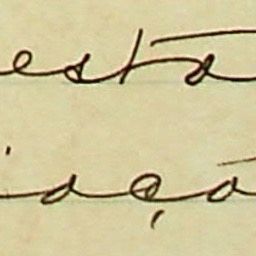 esta
iaçã